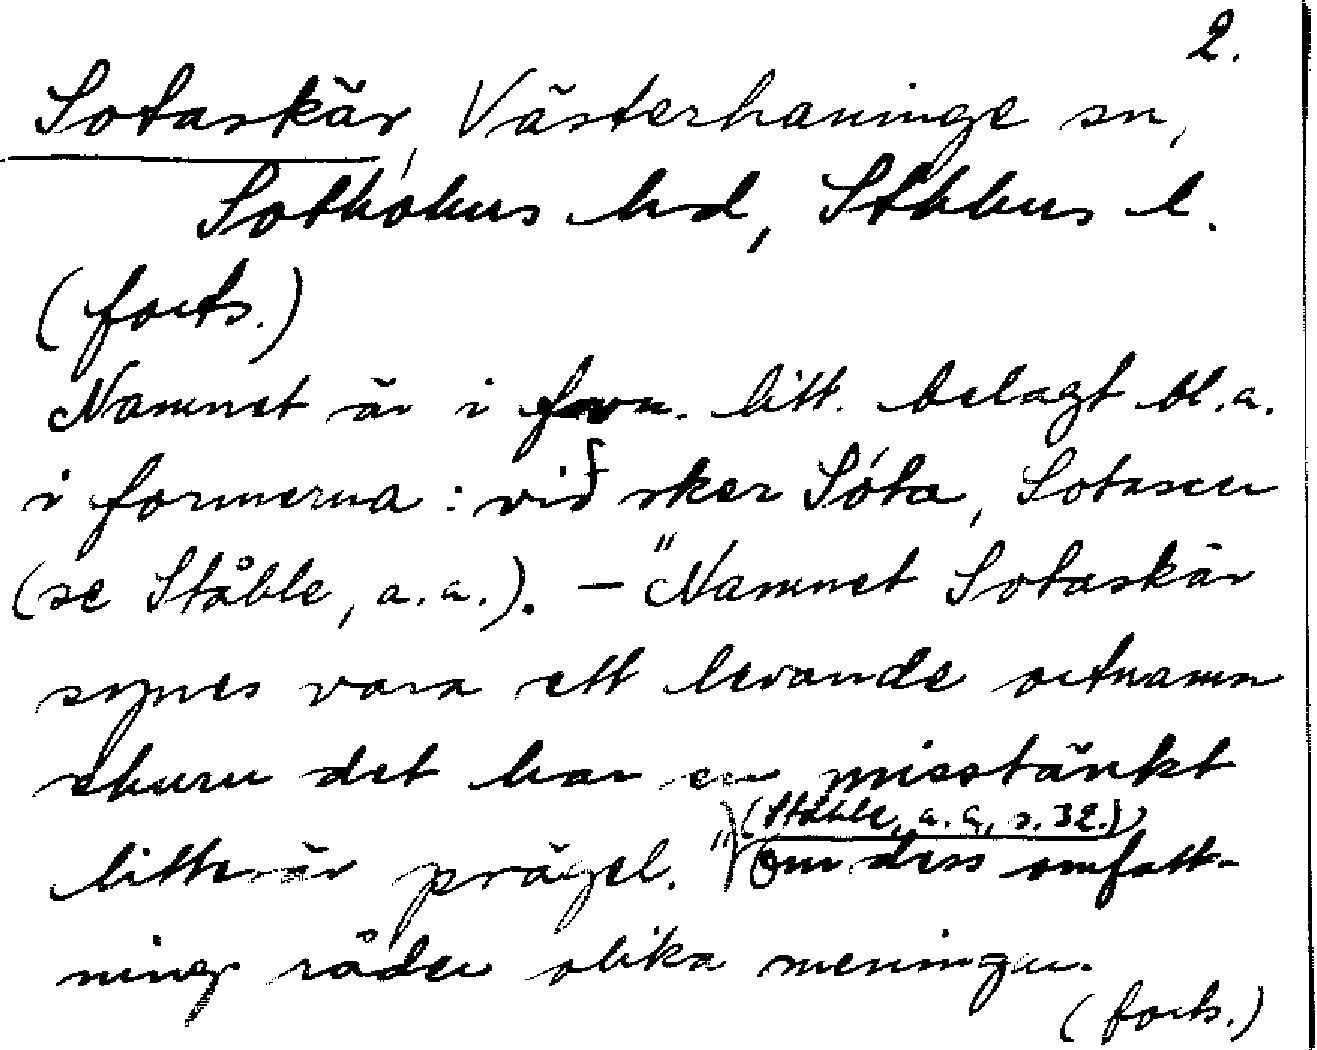 2.
Sotaskär, Västerhaninge sn,
Sotholms hd, Sthlms l.
(forts.)
Namnet är i fvn. litt. belagt bl.a.
i formerna: við sker Sóta, Sotascer
(se Ståhle, a.a.). – "Namnet Sotaskär
synes vara ett levande ortnamn
ehuru det har en misstänkt
(Ståhle, a.a, s.32.)
litterär prägel." Om dess omfatt-
ning råder olika meningar.
(forts.)